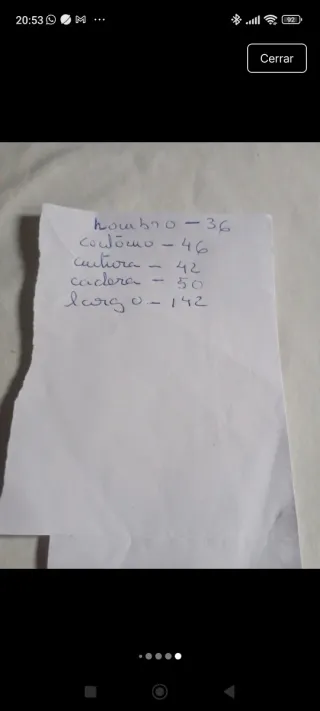 20:53
92
Cerrar
hombro - 36
contorno - 46
cintura - 42
cadera - 50
largo - 142